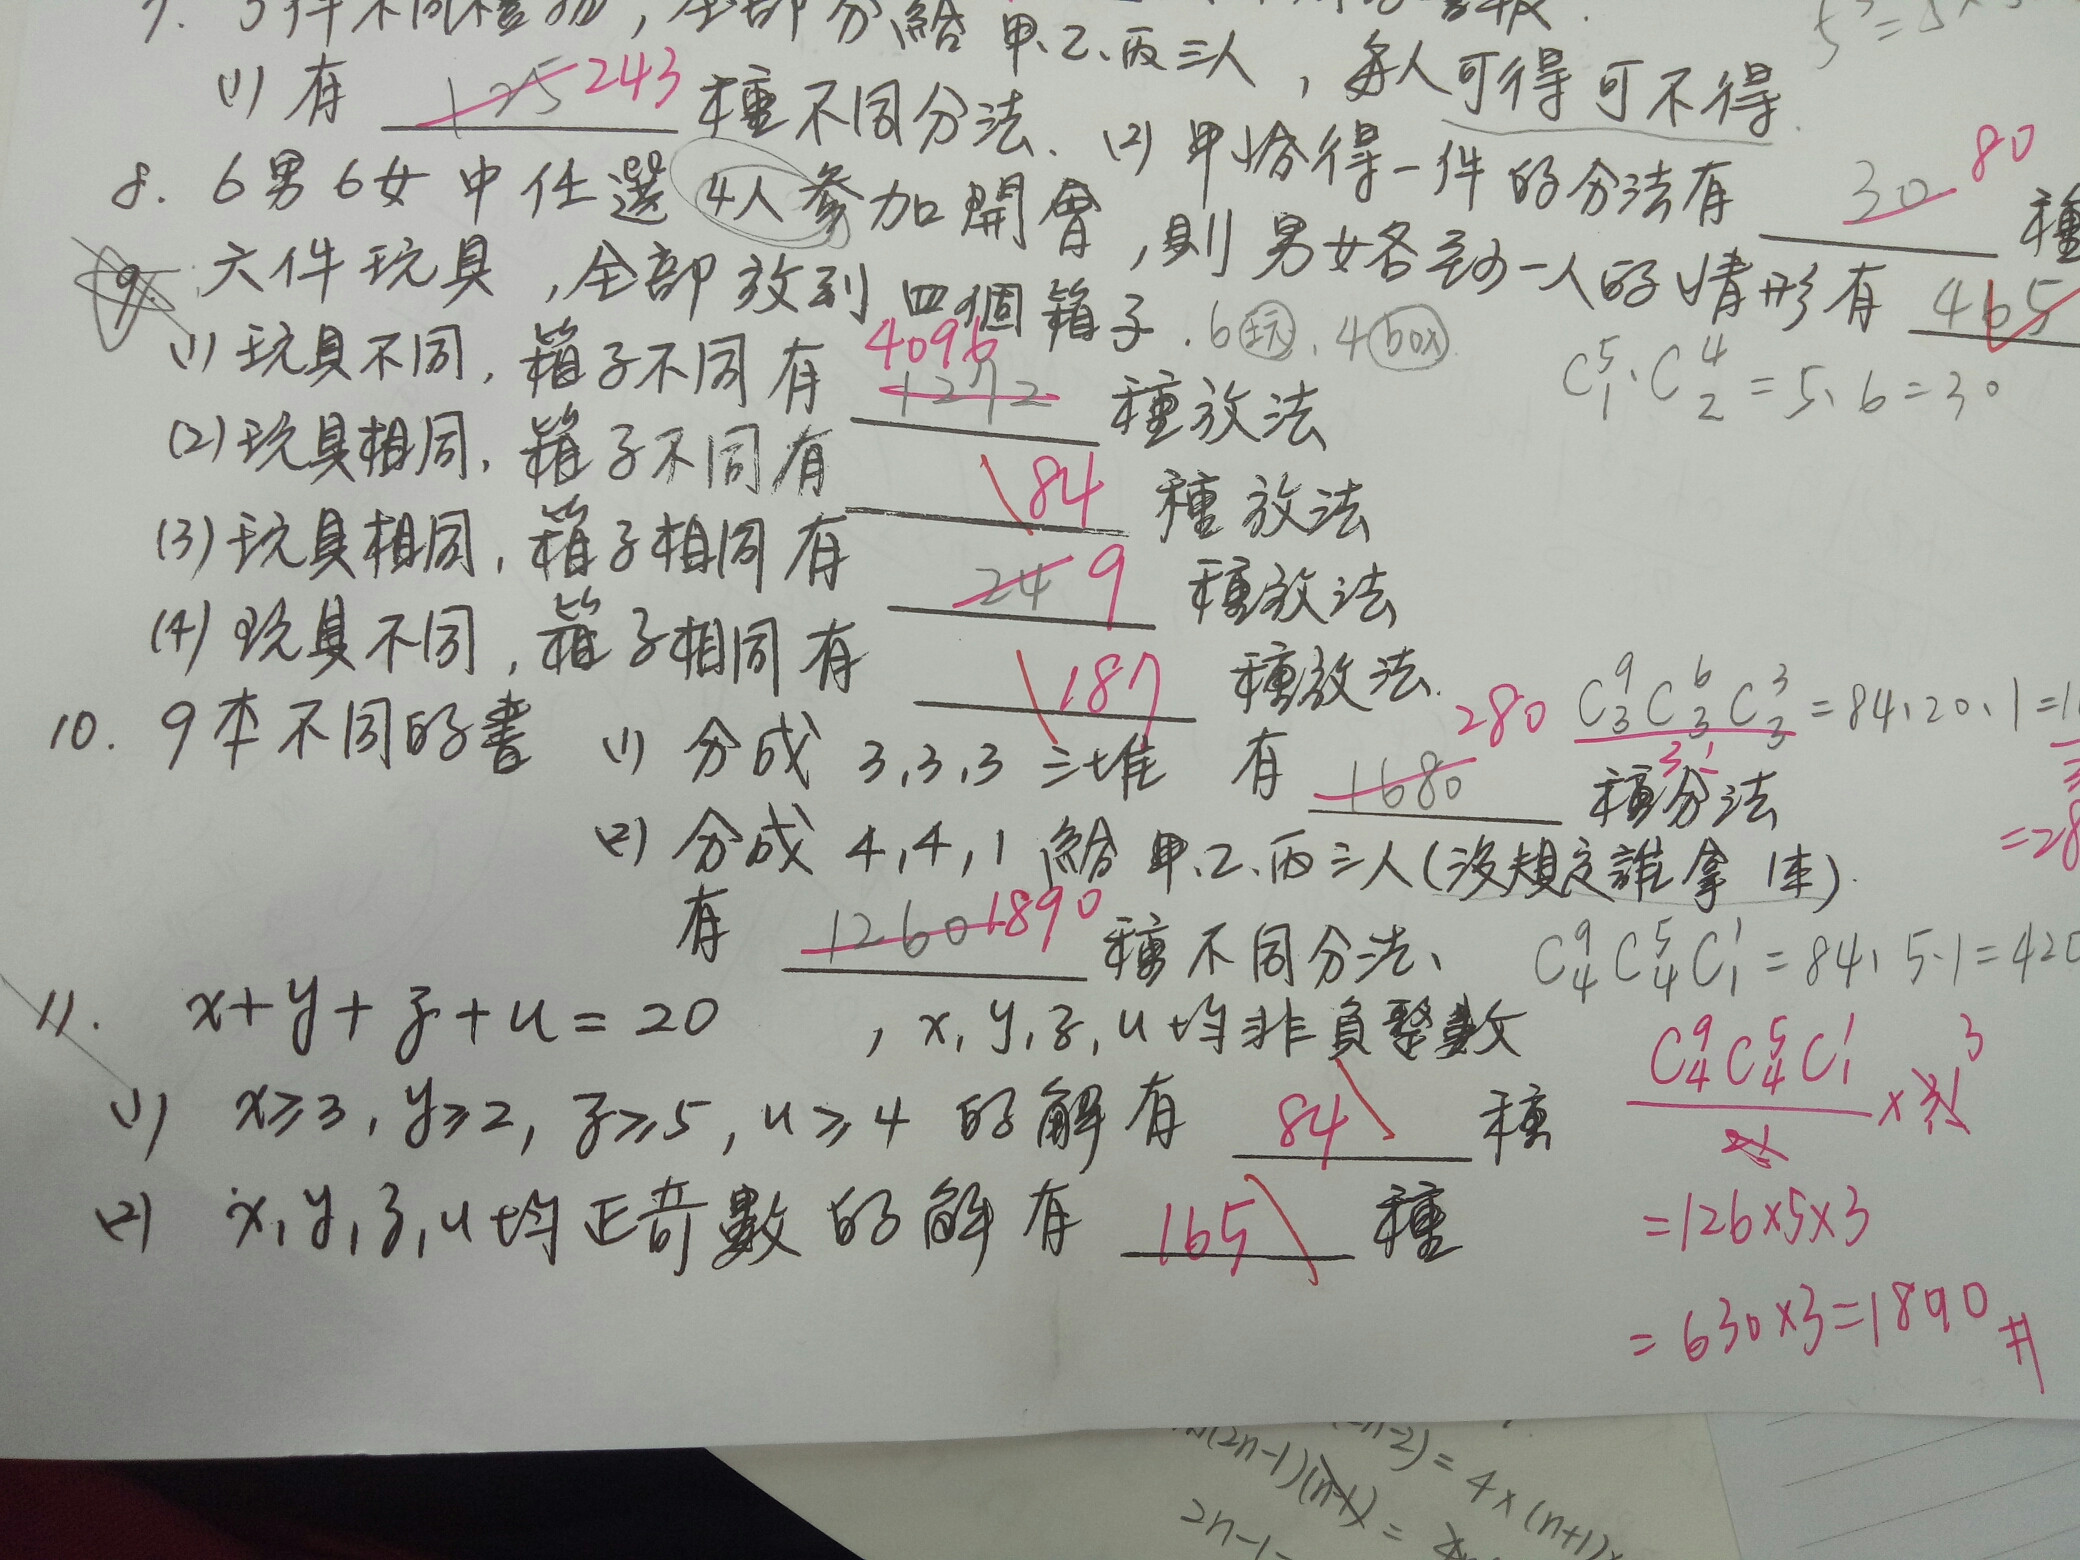 7. 5件不同禮物,全部分給甲、乙、丙三人,每人可得可不得.
5³=5×
(1) 有 125 243 種不同分法. (2) 甲恰得一件的分法有 30 80 種
8. 6男6女中任選4人參加開會,則男女各至少一人的情形有 465
9. 六件玩具,全部放到四個箱子. 6玩、4box
C⁵₁·C⁴₂=5·6=30
(1) 玩具不同,箱子不同有 1272 4096 種放法
(2) 玩具相同,箱子不同有 84 種放法
(3) 玩具相同,箱子相同有 24 9 種放法
(4) 玩具不同,箱子相同有 187 種放法.
10. 9本不同的書 (1) 分成 3,3,3 三堆 有 1680 280 種分法
C⁹₃C⁶₃C³₃=84·20·1=1
3!
=28
(2) 分成 4,4,1 給甲、乙、丙三人(沒規定誰拿1本).
有 1260 1890 種不同分法、
C⁹₄C⁵₄C¹₁=84·5·1=420
C⁹₄C⁵₄C¹₁
2! ×3! 3
=126×5×3
=630×3=1890#
11. x+y+z+u=20 , x,y,z,u均非負整數
(1) x≥3, y≥2, z≥5, u≥4 的解有 84 種
(2) x,y,z,u均正奇數的解有 165 種
(2n-1)(n+1)=
-2)=4×(n+1)
2n-1